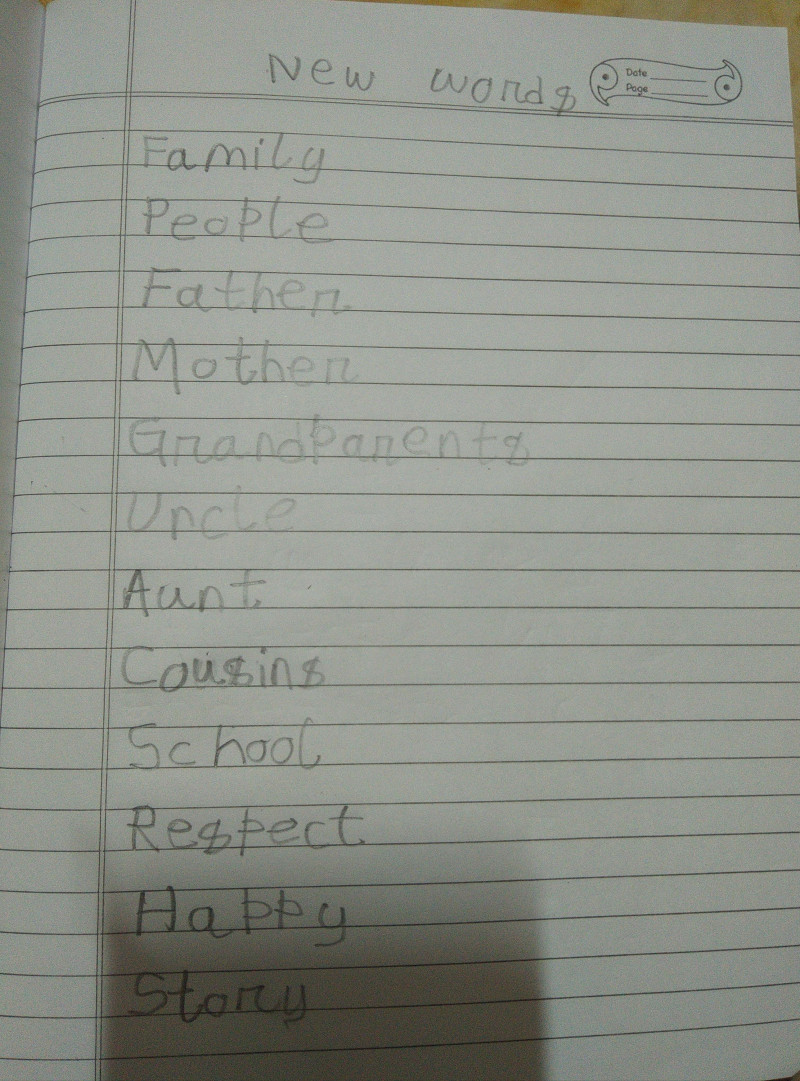 New words
Date
Page
Family
People
Father
Mother
Grandparents
Uncle
Aunt
Cousins
School
Respect
Happy
Story